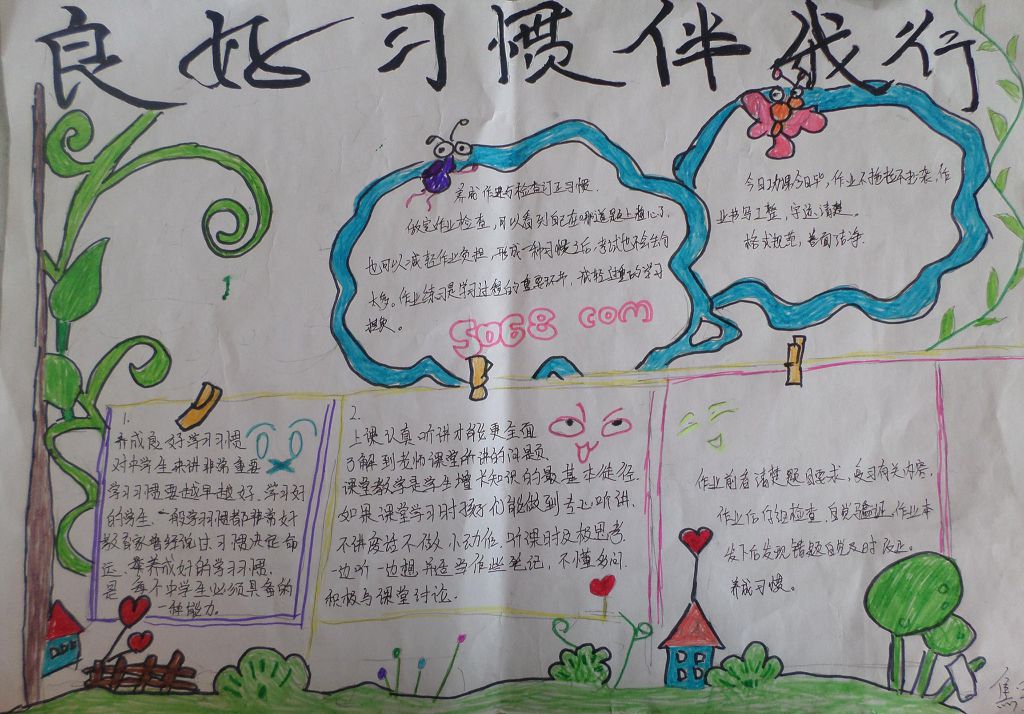 良好习惯伴我行
养成作业后检查订正习惯.
做完作业检查,可以看到自己在哪道题上粗心了,
也可以减轻作业负担,形成一种习惯之后,考试也不会失分
太多。作业练习是学习过程的重要环节,减轻过重的学习
担负。
5068 com
今日功课今日毕,作业不拖拉不抄袭,作
业书写工整,字迹清楚。
格式规范,卷面洁净.
1.
养成良好学习习惯
对中学生来讲非常重要
学习习惯要越早越好.学习好
的学生.一般学习习惯都非常好
教育家曾经说过习惯决定命
运.养成好的学习习惯.
是每个中学生必须具备的
一种能力.
2.
上课认真听讲才能更全面
了解到老师课堂所讲的问题.
课堂教学是学生增长知识的最基本途径.
如果课堂学习时孩子们能做到专心听讲.
不讲废话不做小动作.听课时积极思考.
一边听一边想并适当作些笔记,不懂多问.
积极与课堂讨论.
作业前看清楚题目要求,复习有关内容.
作业后仔细检查.自觉验证.作业本
发下后发现错题自觉及时改正。
养成习惯。
焦